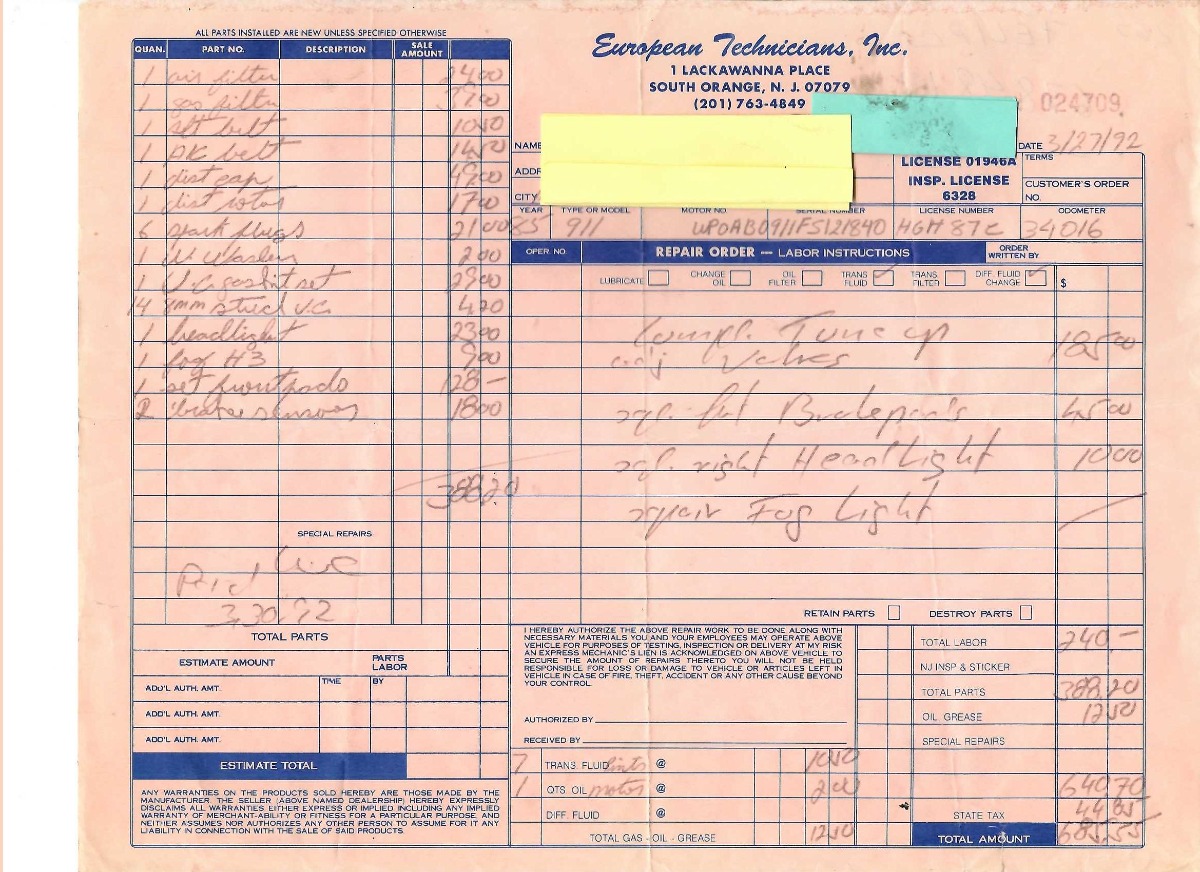 ALL PARTS INSTALLED ARE NEW UNLESS SPECIFIED OTHERWISE
QUAN. PART NO. DESCRIPTION SALE AMOUNT
1 air filter 2400
1 gas filter
1 alt belt 1050
1 PK belt 1450
1 dist cap 4900
1 dist rotor 1700
6 spark plugs 2100
1 W. Washer 200
1 V.C gasket set 2900
14 8mm stud V.C 420
1 headlight 2300
1 fog H3 900
1 set front pads 128 -
2 brake sensors 1800
388.20
SPECIAL REPAIRS
Paid
3.30.92
TOTAL PARTS
ESTIMATE AMOUNT PARTS LABOR
ADD'L AUTH. AMT. TIME BY
ADD'L AUTH. AMT.
ADD'L AUTH. AMT.
ESTIMATE TOTAL
ANY WARRANTIES ON THE PRODUCTS SOLD HEREBY ARE THOSE MADE BY THE
MANUFACTURER. THE SELLER (ABOVE NAMED DEALERSHIP) HEREBY EXPRESSLY
DISCLAIMS ALL WARRANTIES EITHER EXPRESS OR IMPLIED INCLUDING ANY IMPLIED
WARRANTY OF MERCHANT-ABILITY OR FITNESS FOR A PARTICULAR PURPOSE, AND
NEITHER ASSUMES NOR AUTHORIZES ANY OTHER PERSON TO ASSUME FOR IT ANY
LIABILITY IN CONNECTION WITH THE SALE OF SAID PRODUCTS.
European Technicians, Inc.
1 LACKAWANNA PLACE
SOUTH ORANGE, N. J. 07079
(201) 763-4849
024709
NAME
DATE 3/27/92
ADDR
LICENSE 01946A
INSP. LICENSE
6328
TERMS
CITY
CUSTOMER'S ORDER NO.
YEAR TYPE OR MODEL MOTOR NO. SERIAL NUMBER LICENSE NUMBER ODOMETER
85 911 WPOAB0911FS121840 HGH 87C 34016
OPER NO. REPAIR ORDER — LABOR INSTRUCTIONS ORDER WRITTEN BY
LUBRICATE CHANGE OIL OIL FILTER TRANS FLUID TRANS. FILTER DIFF. FLUID CHANGE $
Compl. Tune up
adj Valves 18500
rpl. frt Brakepads 4500
rpl. right HeadLight 1000
repair Fog Light
RETAIN PARTS DESTROY PARTS
I HEREBY AUTHORIZE THE ABOVE REPAIR WORK TO BE DONE ALONG WITH
NECESSARY MATERIALS YOU AND YOUR EMPLOYEES MAY OPERATE ABOVE
VEHICLE FOR PURPOSES OF TESTING, INSPECTION OR DELIVERY AT MY RISK
AN EXPRESS MECHANIC'S LIEN IS ACKNOWLEDGED ON ABOVE VEHICLE TO
SECURE THE AMOUNT OF REPAIRS THERETO YOU WILL NOT BE HELD
RESPONSIBLE FOR LOSS OR DAMAGE TO VEHICLE OR ARTICLES LEFT IN
VEHICLE IN CASE OF FIRE, THEFT, ACCIDENT OR ANY OTHER CAUSE BEYOND
YOUR CONTROL.
AUTHORIZED BY
RECEIVED BY
7 TRANS. FLUID pints @ 1050
1 QTS. OIL motor @ 200
DIFF. FLUID @
TOTAL GAS - OIL - GREASE 1250
TOTAL LABOR 240.-
NJ INSP & STICKER
TOTAL PARTS 388.20
OIL. GREASE 1250
SPECIAL REPAIRS
640.70
STATE TAX 44.85
TOTAL AMOUNT 685.55